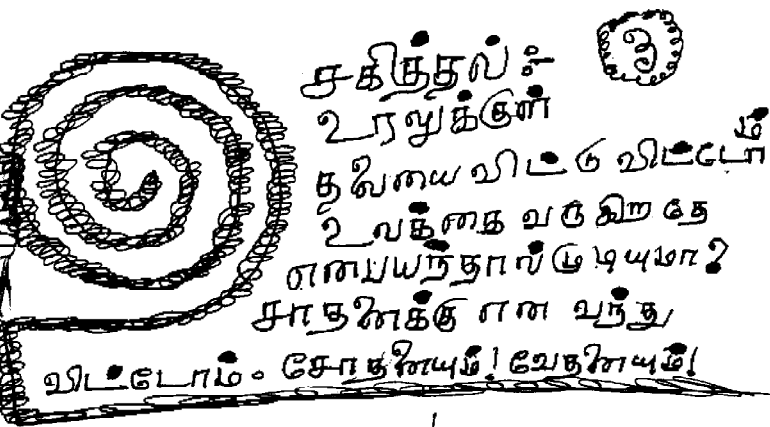 சகித்தல் :-
உரலுக்குள்
தலையை விட்டு விட்டோம்
உலக்கை வருகிறதே
எனப்பயந்தால் முடியுமா?
சாதனைக்கு என வந்து
விட்டோம். சோதனையும்! வேதனையும்!